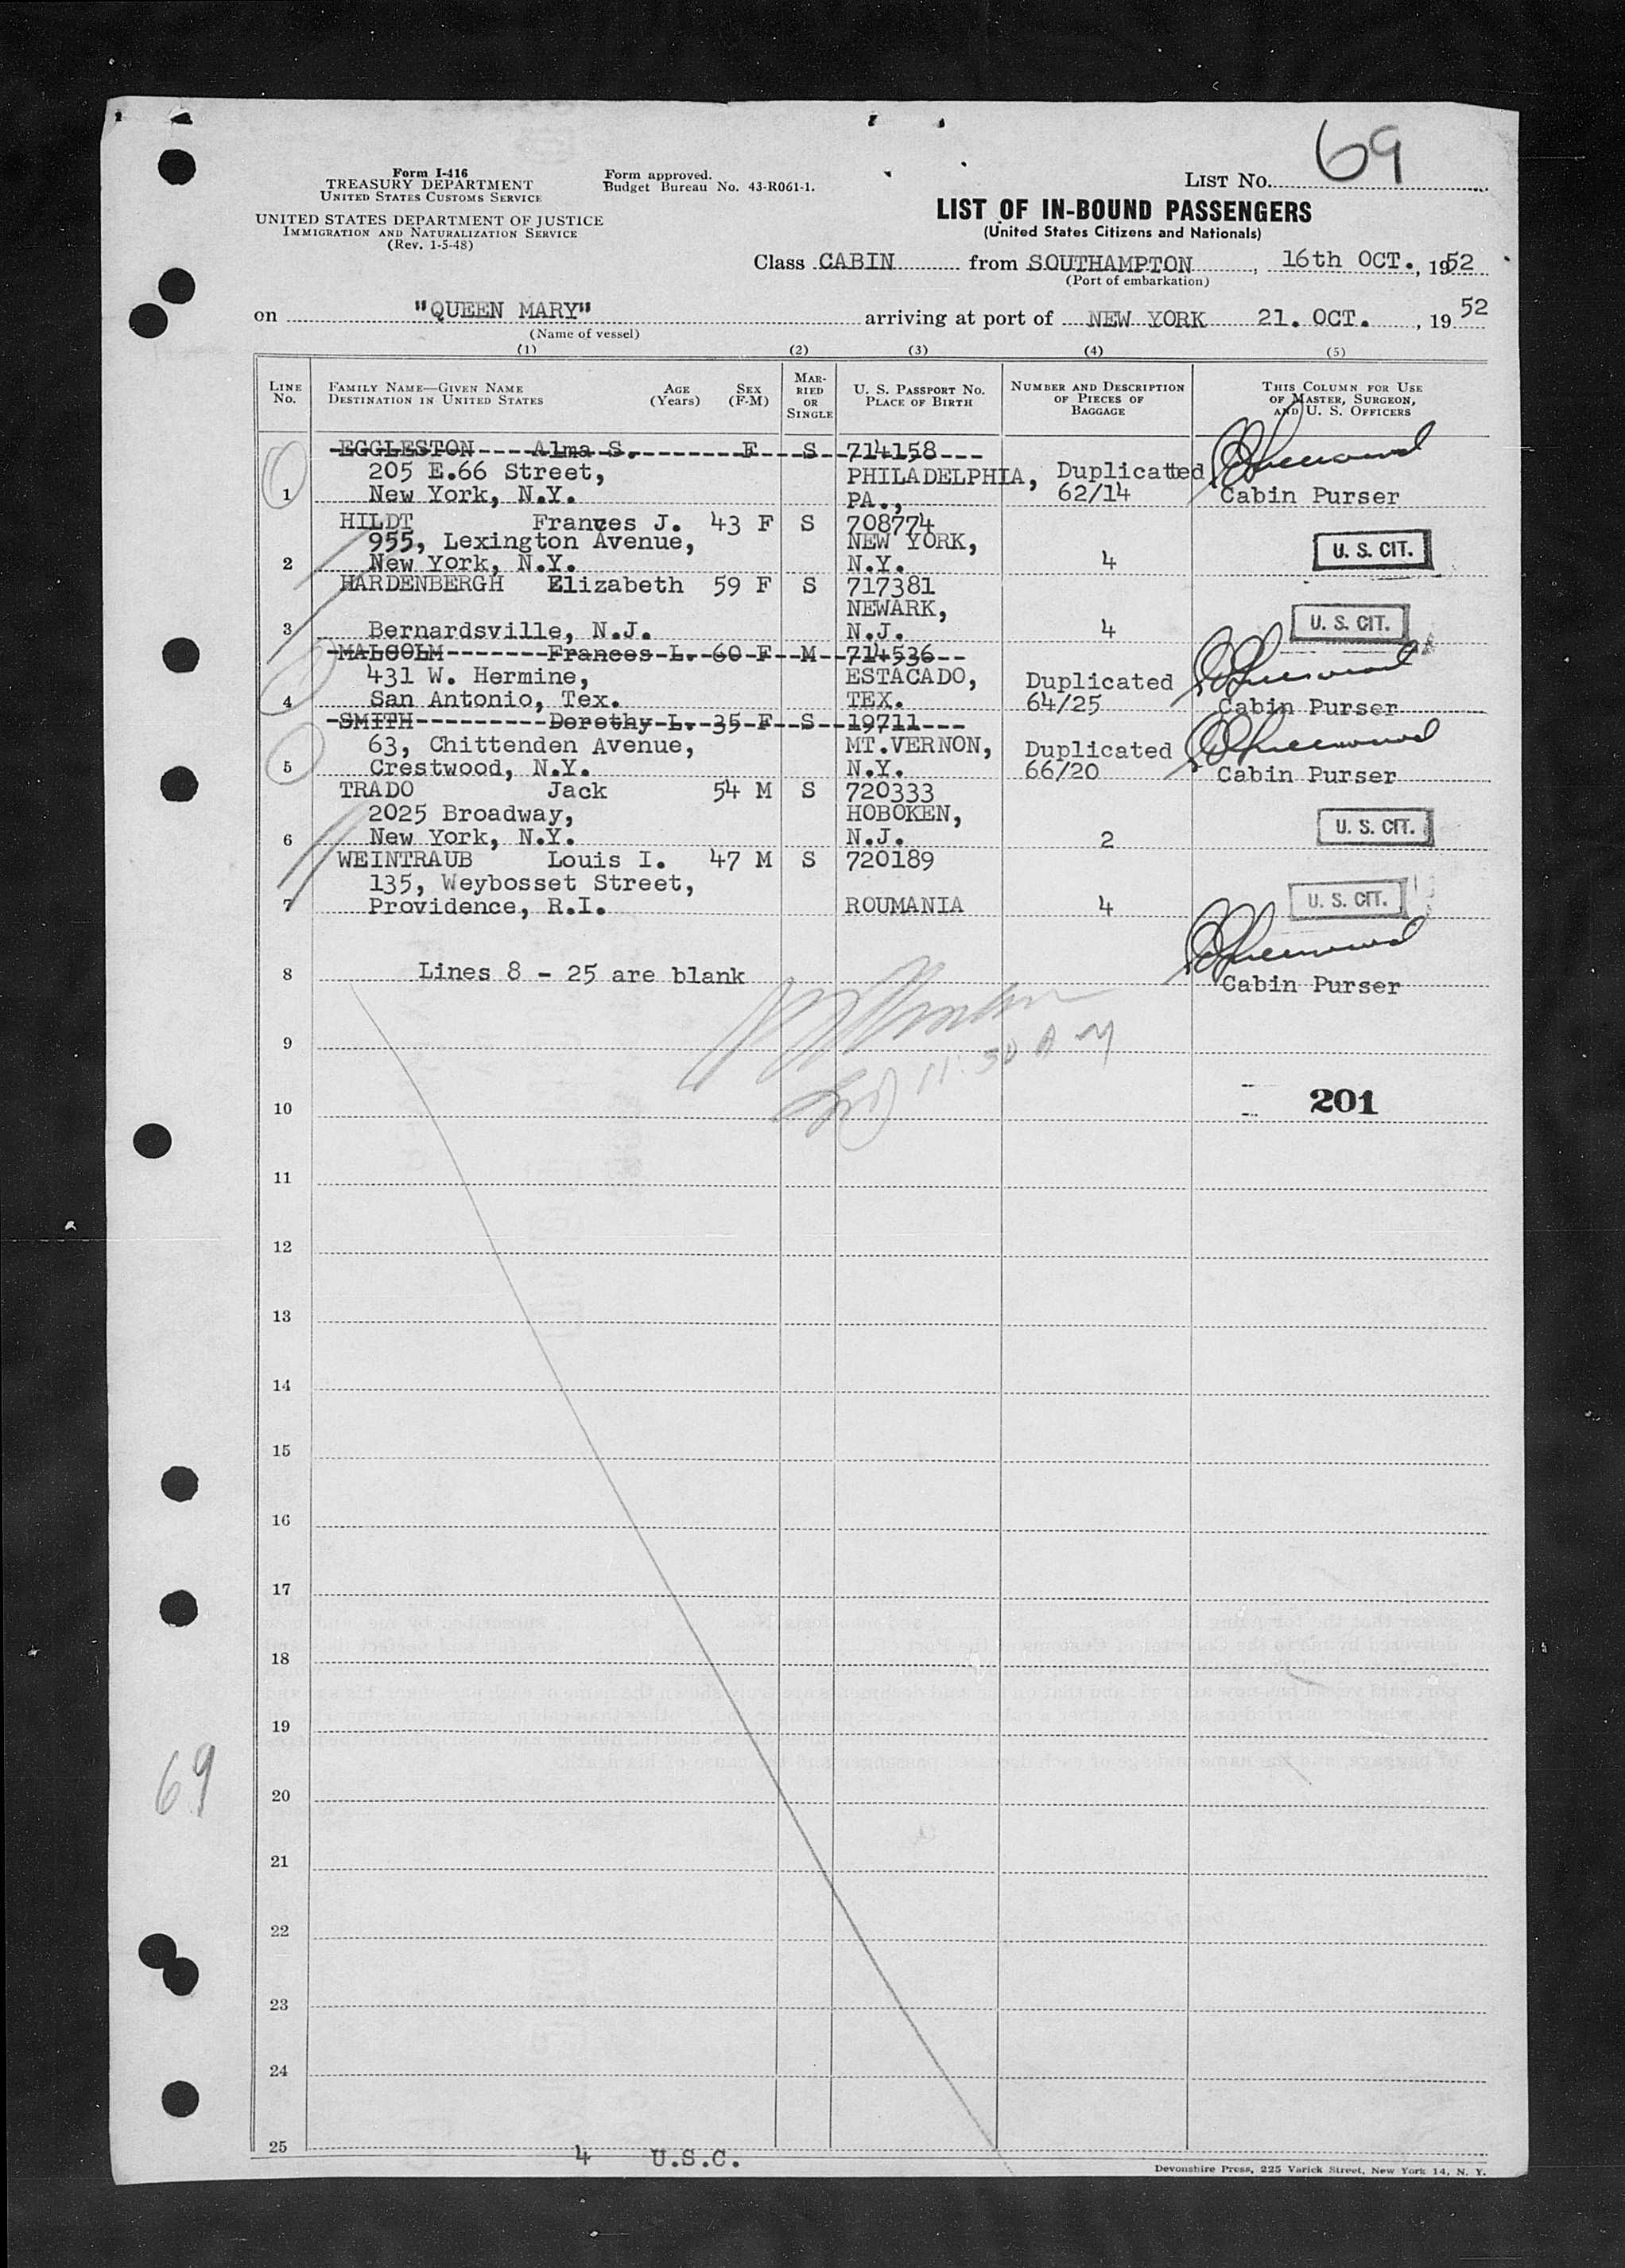 69
Form I-416
TREASURY DEPARTMENT
UNITED STATES CUSTOMS SERVICE
UNITED STATES DEPARTMENT OF JUSTICE
IMMIGRATION AND NATURALIZATION SERVICE
(Rev. 1-5-48)
Form approved.
Budget Bureau No. 43-R061-1.
LIST NO.
LIST OF IN-BOUND PASSENGERS
(United States Citizens and Nationals)
Class CABIN from SOUTHAMPTON, 16th OCT., 1952
(Port of embarkation)
on "QUEEN MARY" arriving at port of NEW YORK 21. OCT., 19 52
(Name of vessel)
(1) (2) (3) (4) (5)
LINE NO.
FAMILY NAME—GIVEN NAME
DESTINATION IN UNITED STATES
AGE (Years)
SEX (F-M)
MARRIED OR SINGLE
U. S. PASSPORT NO.
PLACE OF BIRTH
NUMBER AND DESCRIPTION OF PIECES OF BAGGAGE
THIS COLUMN FOR USE OF MASTER, SURGEON, AND U. S. OFFICERS
EGGLESTON Alma S. F S 714158
205 E.66 Street, PHILADELPHIA, Duplicatted
1 New York, N.Y. PA., 62/14 Cabin Purser
HILDT Frances J. 43 F S 708774
955, Lexington Avenue, NEW YORK, U. S. CIT.
2 New York, N.Y. N.Y. 4
HARDENBERGH Elizabeth 59 F S 717381
NEWARK,
3 Bernardsville, N.J. N.J. 4 U. S. CIT.
MALCOLM Frances L. 60 F M 714536
431 W. Hermine, ESTACADO, Duplicated
4 San Antonio, Tex. TEX. 64/25 Cabin Purser
SMITH Dorothy L. 35 F S 19711
63, Chittenden Avenue, MT.VERNON, Duplicated
5 Crestwood, N.Y. N.Y. 66/20 Cabin Purser
TRADO Jack 54 M S 720333
2025 Broadway, HOBOKEN, U. S. CIT.
6 New York, N.Y. N.J. 2
WEINTRAUB Louis I. 47 M S 720189
135, Weybosset Street,
7 Providence, R.I. ROUMANIA 4 U. S. CIT.
8 Lines 8 - 25 are blank Cabin Purser
9 11:50 AM
10 201
11
12
13
14
15
16
17
18
19
69
20
21
22
23
24
25
4 U.S.C.
Devonshire Press, 225 Varick Street, New York 14, N. Y.